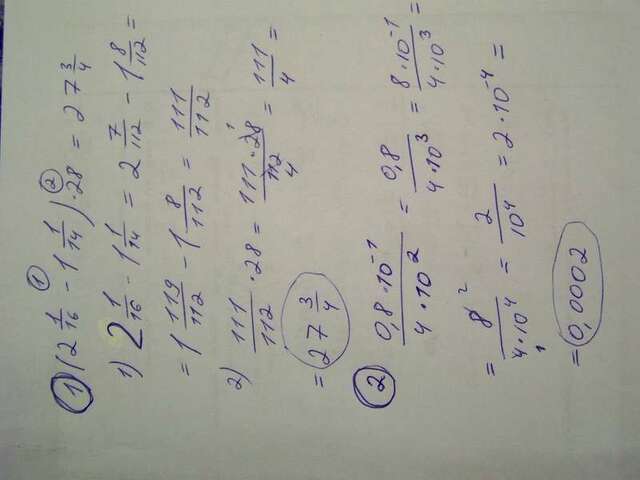 ① (2 1/16 - 1 1/14)·28 = 27 3/4
① ②
1) 2 1/16 - 1 1/14 = 2 7/112 - 1 8/112 =
= 1 119/112 - 1 8/112 = 111/112
2) 111/112 · 28 = 111·28/112 = 111/4 =
1
4
= 27 3/4
② 0,8·10⁻¹/4·10² = 0,8/4·10³ = 8·10⁻¹/4·10³ =
= 8/4·10⁴ = 2/10⁴ = 2·10⁻⁴ =
2
1
= 0,0002